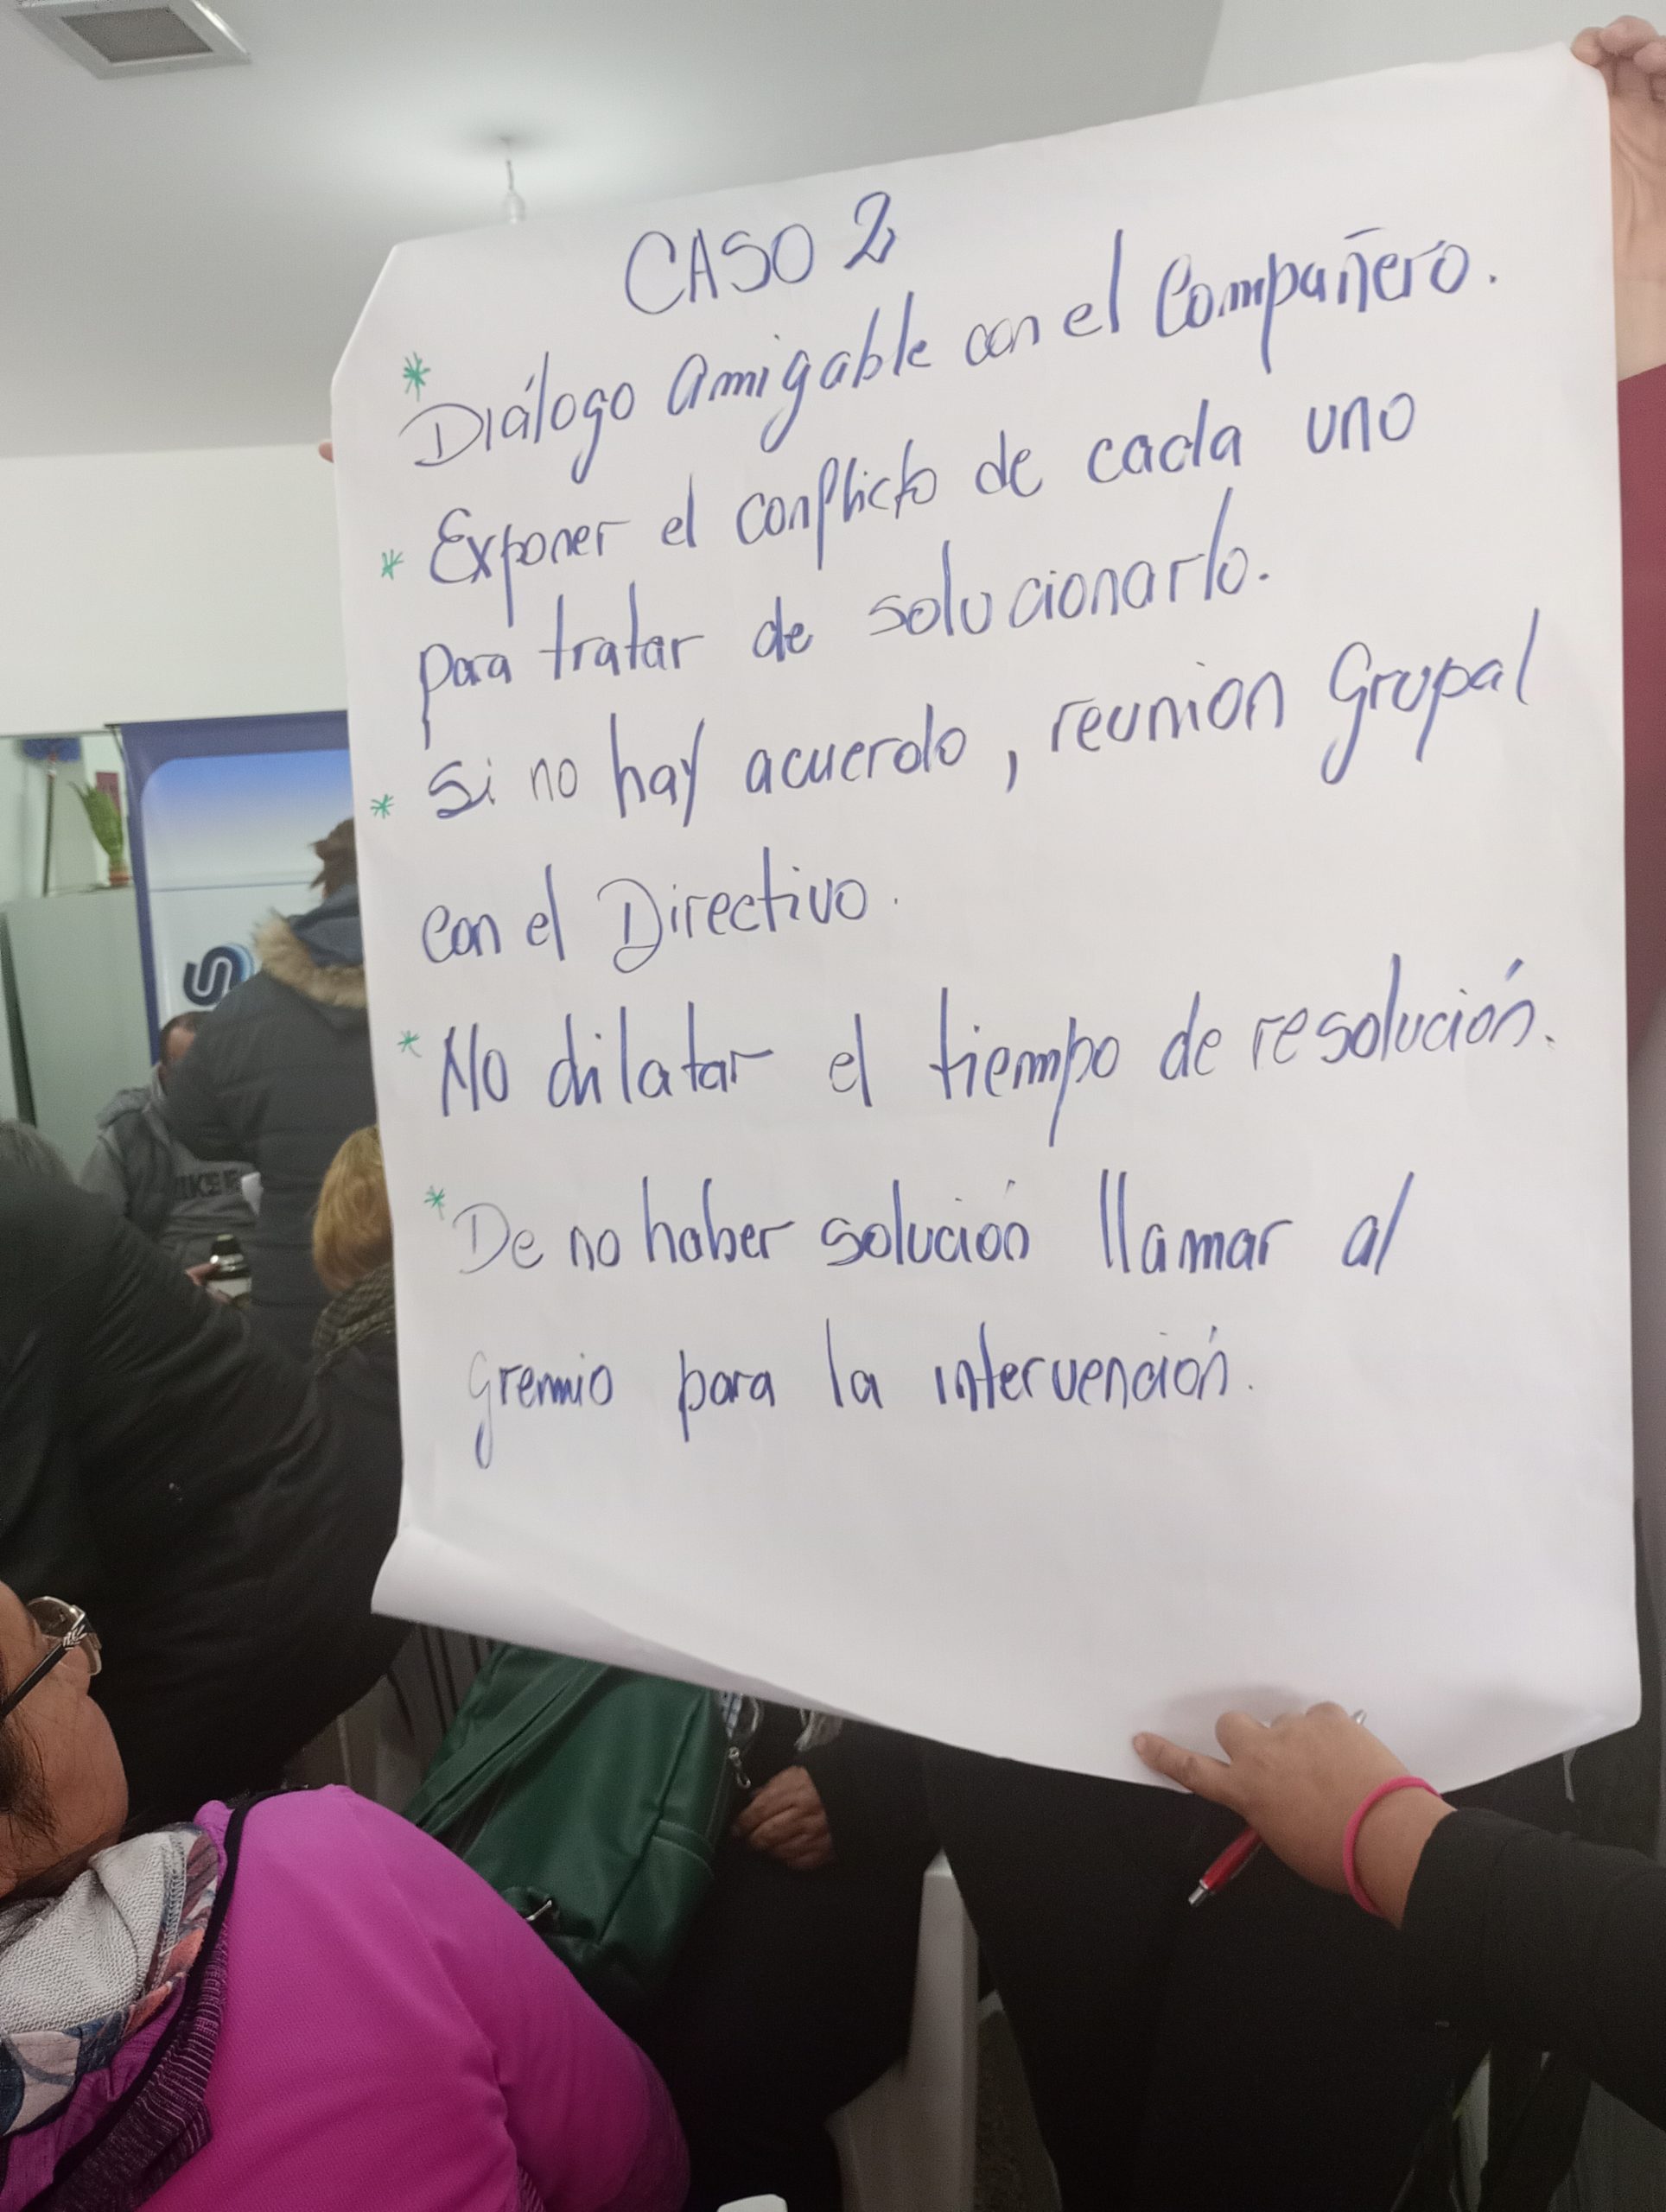 CASO 2
* Diálogo Amigable con el Compañero.
* Exponer el conflicto de cada uno
para tratar de solucionarlo.
* Si no hay acuerdo, reunion Grupal
con el Directivo.
* No dilatar el tiempo de resolución.
* De no haber solución llamar al
gremio para la intervención.